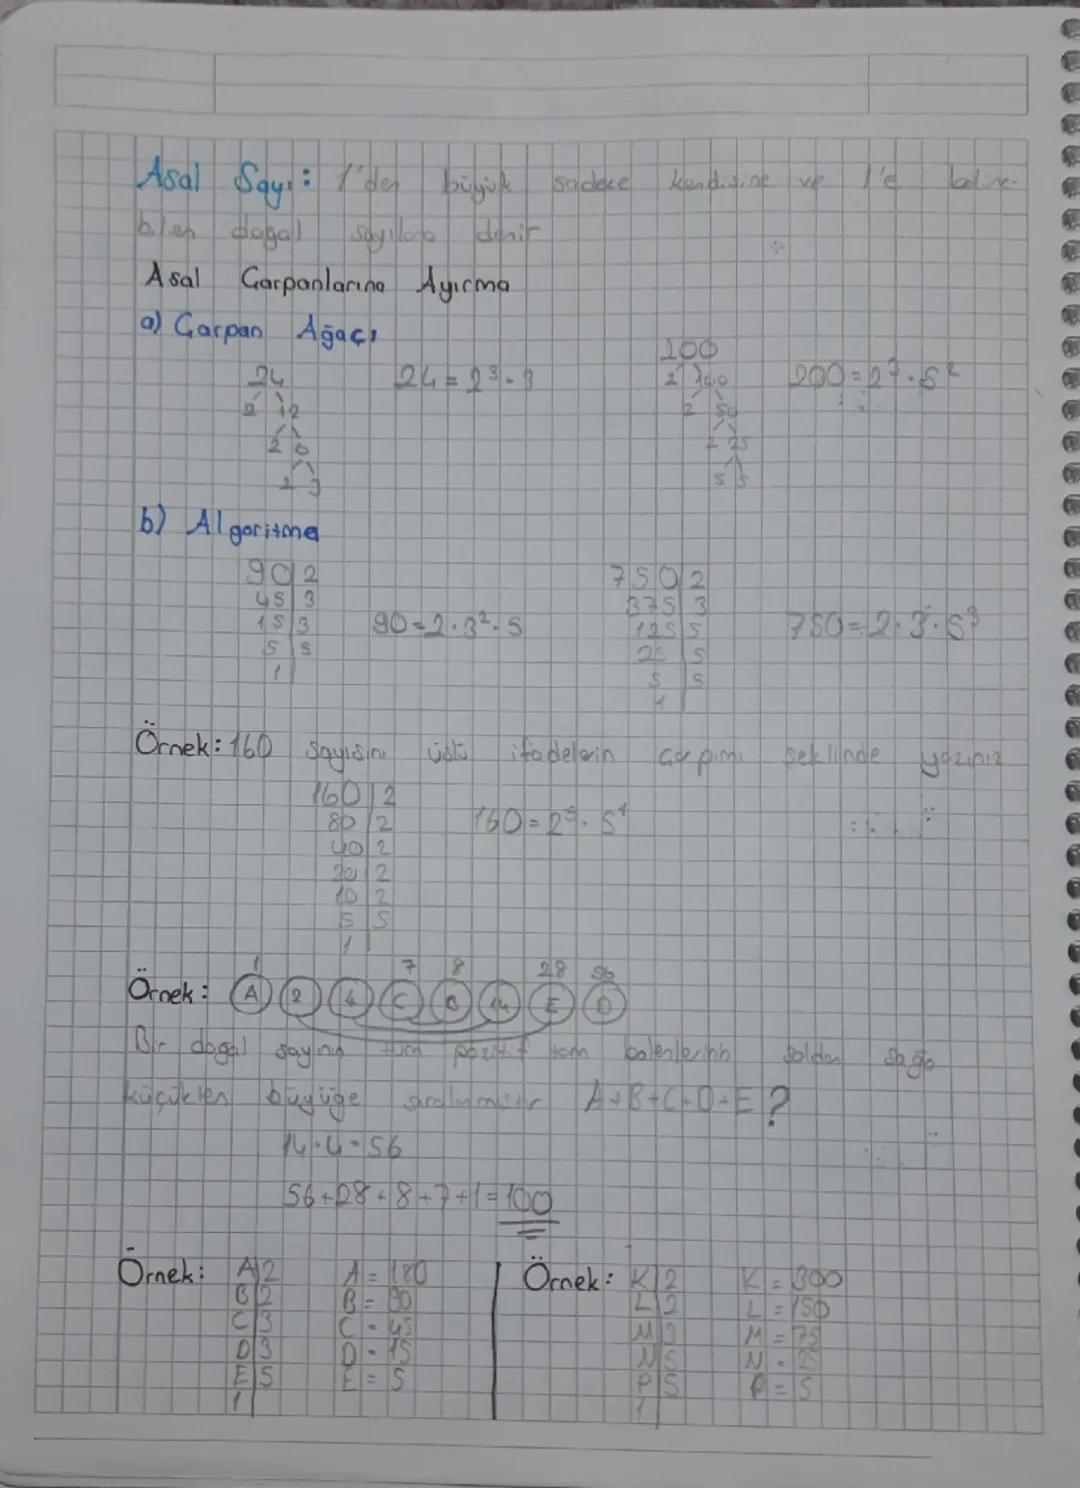 Asal Sayı: 1'den büyük sadece kendisine ve 1'e bölüne-
bilen doğal sayılara denir
Asal Çarpanlarına Ayırma
a) Çarpan Ağaçı
24 24=2³.3 200 200=2³.5²
2 12 2 100
2 6 2 50
2 3 2 25
5 5
b) Algoritma
90 2 750 2
45 3 375 3
15 3 90=2.3².5 125 5 750=2.3.5³
5 5 25 5
1 5 5
1
Örnek: 160 sayısını üslü ifadelerin çarpımı şeklinde yazınız
160 2
80 2 160=2⁵.5¹
40 2
20 2
10 2
5 5
1
1 7 8 28 56
Örnek: A 2 4 C B 14 E D
Bir doğal sayının tüm pozitif tam bölenlerinin soldan sağa
küçükten büyüğe sıralanmıştır A+B+C+D+E?
14.4=56
56+28+8+7+1=100
Örnek: A 2 A=180 Örnek: K 2 K=300
B 2 B=90 L 2 L=150
C 3 C=45 M 3 M=75
D 3 D=15 N 5 N=25
E 5 E=5 P 5 P=5
1 1